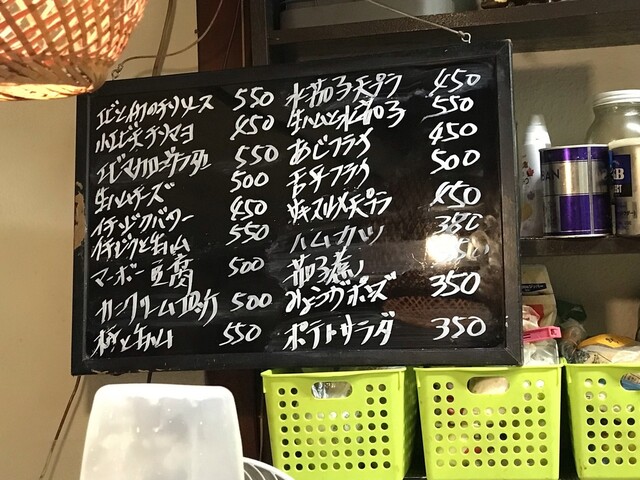 エビとイカのチリソース 550
小エビ天チリマヨ 450
エビマカロニグラタン 550
生ハムチーズ 500
イチジクバター 450
イチジクと生ハム 550
マーボー豆腐 500
カニクリームコロッケ 500
柿と生ハム 550
水茄子天プラ 450
生ハムと水茄子 550
あじフライ 450
舌平フライ 500
サキスルメ天プラ 450
ハムカツ 380
茄子煮
みょうがポーズ 350
ポテトサラダ 350